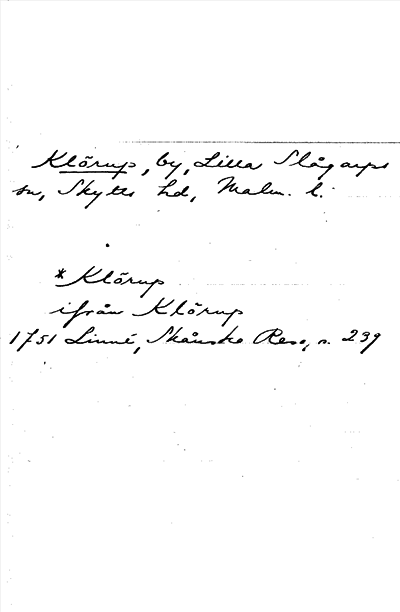 Klörup, by, Lilla Slågarps
sn, Skytts hd, Malm. l.
*Klörup
ifrån Klörup
1751 Linné, Skånska Resa, s. 239